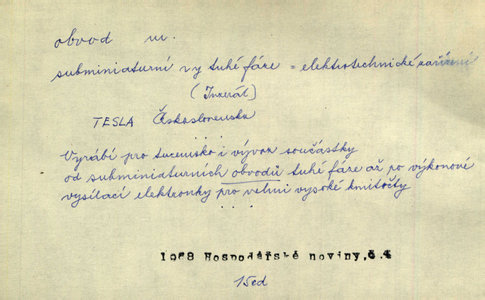 obvod m.
subminiaturní vy tuhé fáze = elektrotechnické zařízení
(Inzerát)
TESLA Československo
. . .
Vyrábí pro tuzemsko i vývoz součástky
od subminiaturních obvodů tuhé fáze až po výkonové
vysílací elektronky pro velmi vysoké kmitočty
. . .
1968 Hospodářské noviny,č.4
15cd